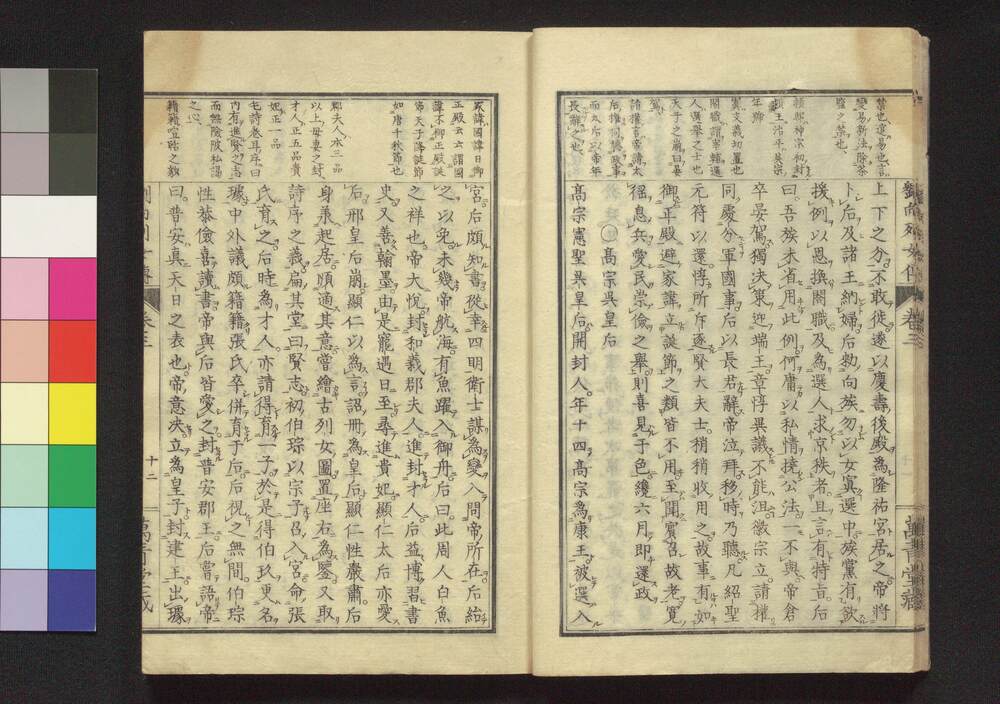 上下之分不敢徙遂以慶壽後殿為隆祐宮居之帝將
卜后及諸王納婦后勑向族勿以女寘選中族黨有欲
援例以恩換閤職及為選人求京秩者且言有特旨后
曰吾族未省用此例何庸以私情撓公法一不與帝倉
卒晏駕獨決策迎端王章惇異議不能沮徽宗立請權
同處分軍國事后以長君辭帝泣拜移時乃聽凡紹聖
元符以還惇所斥逐賢大夫士稍稍收用之故事有如
御正殿避家諱立誕節之類皆不用至聞賓召故老寬
徭息兵愛民崇儉之舉則喜見于色纔六月即還政
○高宗吳皇后
高宗憲聖吳皇后開封人年十四高宗為康王被選入
宮后頗知書從幸四明衛士謀為變入問帝所在后紿
之以免未幾帝航海有魚躍入御舟后曰此周人白魚
之祥也帝大悅封和義郡夫人進封才人后益博習書
史又善翰墨由是寵遇日至尋進貴妃顯仁太后亦愛
后邢皇后崩顯仁以為言詔冊為皇后顯仁性嚴肅后
身承起居順適其意嘗繪古列女圖置座右為鑒又取
詩序之義扁其堂曰賢志初伯琮以宗子召入宮命張
氏育之后時為才人亦請得育一子於是得伯玖更名
璩中外議頗籍籍張氏卒併育于后后視之無間伯琮
性恭儉喜讀書帝與后皆愛之封普安郡王后嘗語帝
曰普安真天日之表也帝意決立為皇子封建王出璩
家諱國諱日御
正殿云云謂國
諱不御正殿誕
節天子降誕節
如唐千秋節也
郡夫人宋三品
以上母妻之封
才人正五品貴
妃正一品
毛詩卷耳序曰
內有進賢之志
而無險詖私謁
之心
籍籍喧聒之貌
卷三
十二